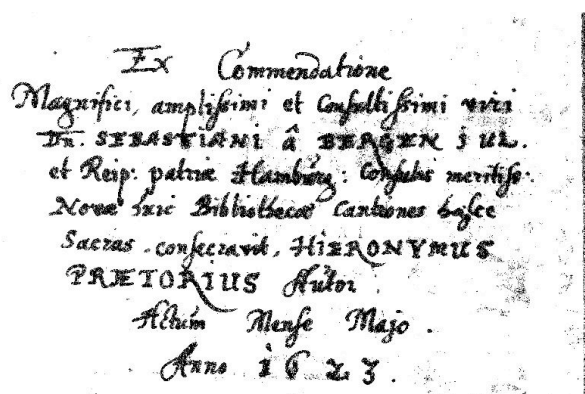 Ex Commendatione
Magnifici, amplissimi et Consultissimi viri
Dn. SEBASTIANI â BERGEN J UL.
et Reip: patriæ Hamburg: Consulis meritiss.
Novæ huic Bibliothecæ Cantiones hasce
Sacras . consecravit . HIERONYMUS
PRÆTORIUS Autor .
Actum Mense Majo .
Anno 1623 .